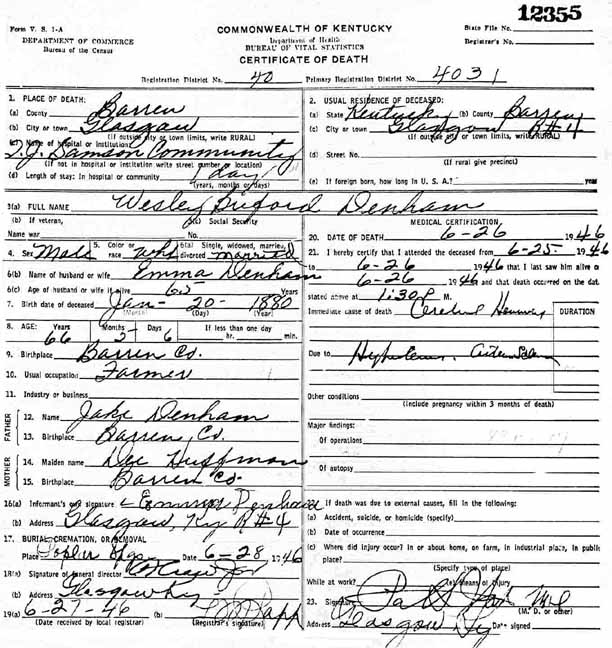 12355
Form V. S. 1-A
DEPARTMENT OF COMMERCE
Bureau of the Census
COMMONWEALTH OF KENTUCKY
Department of Health
BUREAU OF VITAL STATISTICS
CERTIFICATE OF DEATH
State File No.
Registrar's No.
Registration District No. 40 Primary Registration District No. 4031
1. PLACE OF DEATH:
(a) County Barren
(b) City or town Glasgow
(If outside city or town limits, write RURAL)
(c) Name of hospital or institution:
T. J. Samson Community
(If not in hospital or institution write street number or location)
(d) Length of stay: In hospital or community 1 day
(years, months or days)
2. USUAL RESIDENCE OF DECEASED:
(a) State Kentucky (b) County Barren
(c) City or town Glasgow R#4
(If outside city or town limits, write RURAL)
(d) Street No.
(If rural give precinct)
(e) If foreign born, how long in U. S. A.? year
3(a) FULL NAME Wesley Buford Denham
(b) If veteran,
Name war
(c) Social Security
No.
4. Sex Male 5. Color or race wht 6(a) Single, widowed, married, divorced married
6(b) Name of husband or wife Emma Denham
6(c) Age of husband or wife if alive 65 Years
7. Birth date of deceased Jan- 20- 1880
(Month) (Day) (Year)
8. AGE: Years Months Days If less than one day
66 5 6 hr. min.
9. Birthplace Barren Co.
10. Usual occupation Farmer
11. Industry or business
FATHER
12. Name Jake Denham
13. Birthplace Barren Co.
MOTHER
14. Maiden name Dee Huffman
15. Birthplace Barren Co.
16(a) Informant's own signature Emma Denham
(b) Address Glasgow, Ky R#4
17. BURIAL, CREMATION, OR REMOVAL
Place Date 6-28 1946
18(a) Signature of funeral director
(b) Address Glasgow Ky
19(a) 6-27-46 (b)
(Date received by local registrar) (Registrar's signature)
MEDICAL CERTIFICATION
20. DATE OF DEATH 6-26 1946
21. I hereby certify that I attended the deceased from 6-25- 1946
to 6-26 1946 that I last saw him alive o
6-26 1946 and that death occurred on the dat
stated above at 1:30 P M.
Immediate cause of death Cerebral
DURATION
Due to
Other conditions
(Include pregnancy within 3 months of death)
Major findings:
Of operations
Of autopsy
22. If death was due to external causes, fill in the following:
(a) Accident, suicide, or homicide (specify)
(b) Date of occurrence
(c) Where did injury occur? In or about home, on farm, in industrial place, in public
place?
(Specify type of place)
While at work? (e) Means of injury
23. Signature
(M. D. or other)
Address Glasgow Ky Date signed